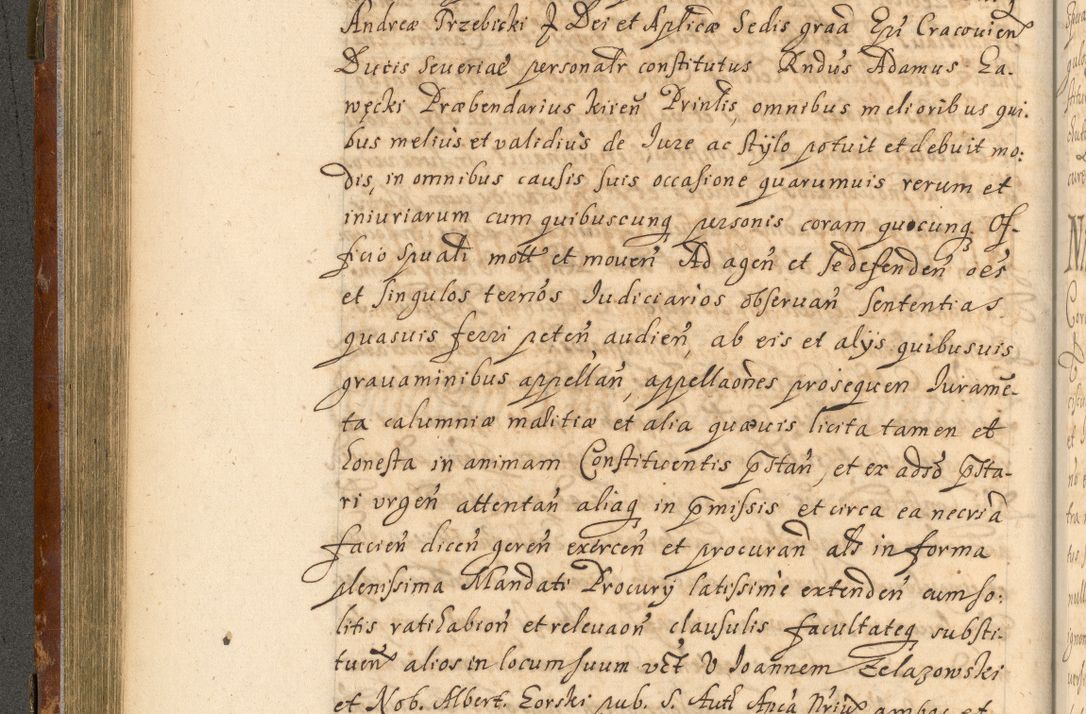 Andreæ Trzebicki J Dei et Aplicæ Sedis graã Epi Cracovien
Ducis Severiaĕ personalr constitutus Rndus Adamus Za-
węcki Præbendarius kiren Prinlis, omnibus melioribus qui-
bus melius et validius de Jure ac stylo potuit et debuit mo:
dis, in omnibus causis suis occasione quarumuis rerum et
iniuriarum cum quibuscunq personis coram quocunq Of-
ficio Spuali mott et moven Ad agen et se defenden oes
et singulos termos Judiciarios observan sententias
quasuis ferri peten audien, ab eis et alÿs quibusuis
gravaminibus appellan, appellaones prosequen Jurame-
ta calumniæ malitiæ et alia quævis licita tamen et
honesta in animam Constituentis p̄stan, et ex adso p̄sta-
ri urgen attentan aliaq in p̄missis et circa ea necria
facien dicen geren exercen et procuran als in forma
plenissima Mandati Procurÿ latissime extenden cum so:
litis ratihabion et relevaon clausulis facultateq substi-
tuen alios in locum suum vct V Joannem Zelazowski
et Nob. Albert. Gorski pub. S. Autt Apca Nriux ambos et